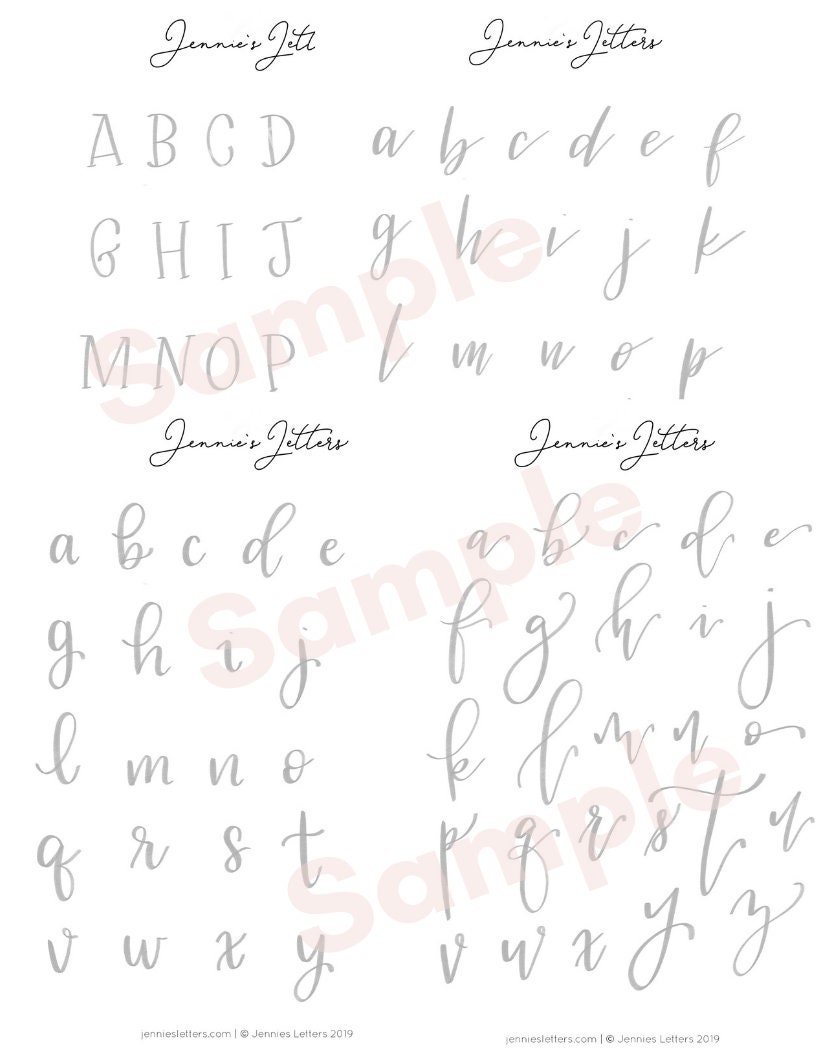 Jennie's Lett
A B C D
G H I J
M N O P
Jennie's Letters
a b c d e f
g h i j k
l m n o p
Sample
Jennie's Letters
a b c d e
g h i j
l m n o
q r s t
v w x y
Sample
Sample
jenniesletters.com | © Jennies Letters 2019
Jennie's Letters
a b c d e
f g h i j
k l m n o
p q r s t u
v w x y z
Sample
Sample
jenniesletters.com | © Jennies Letters 2019